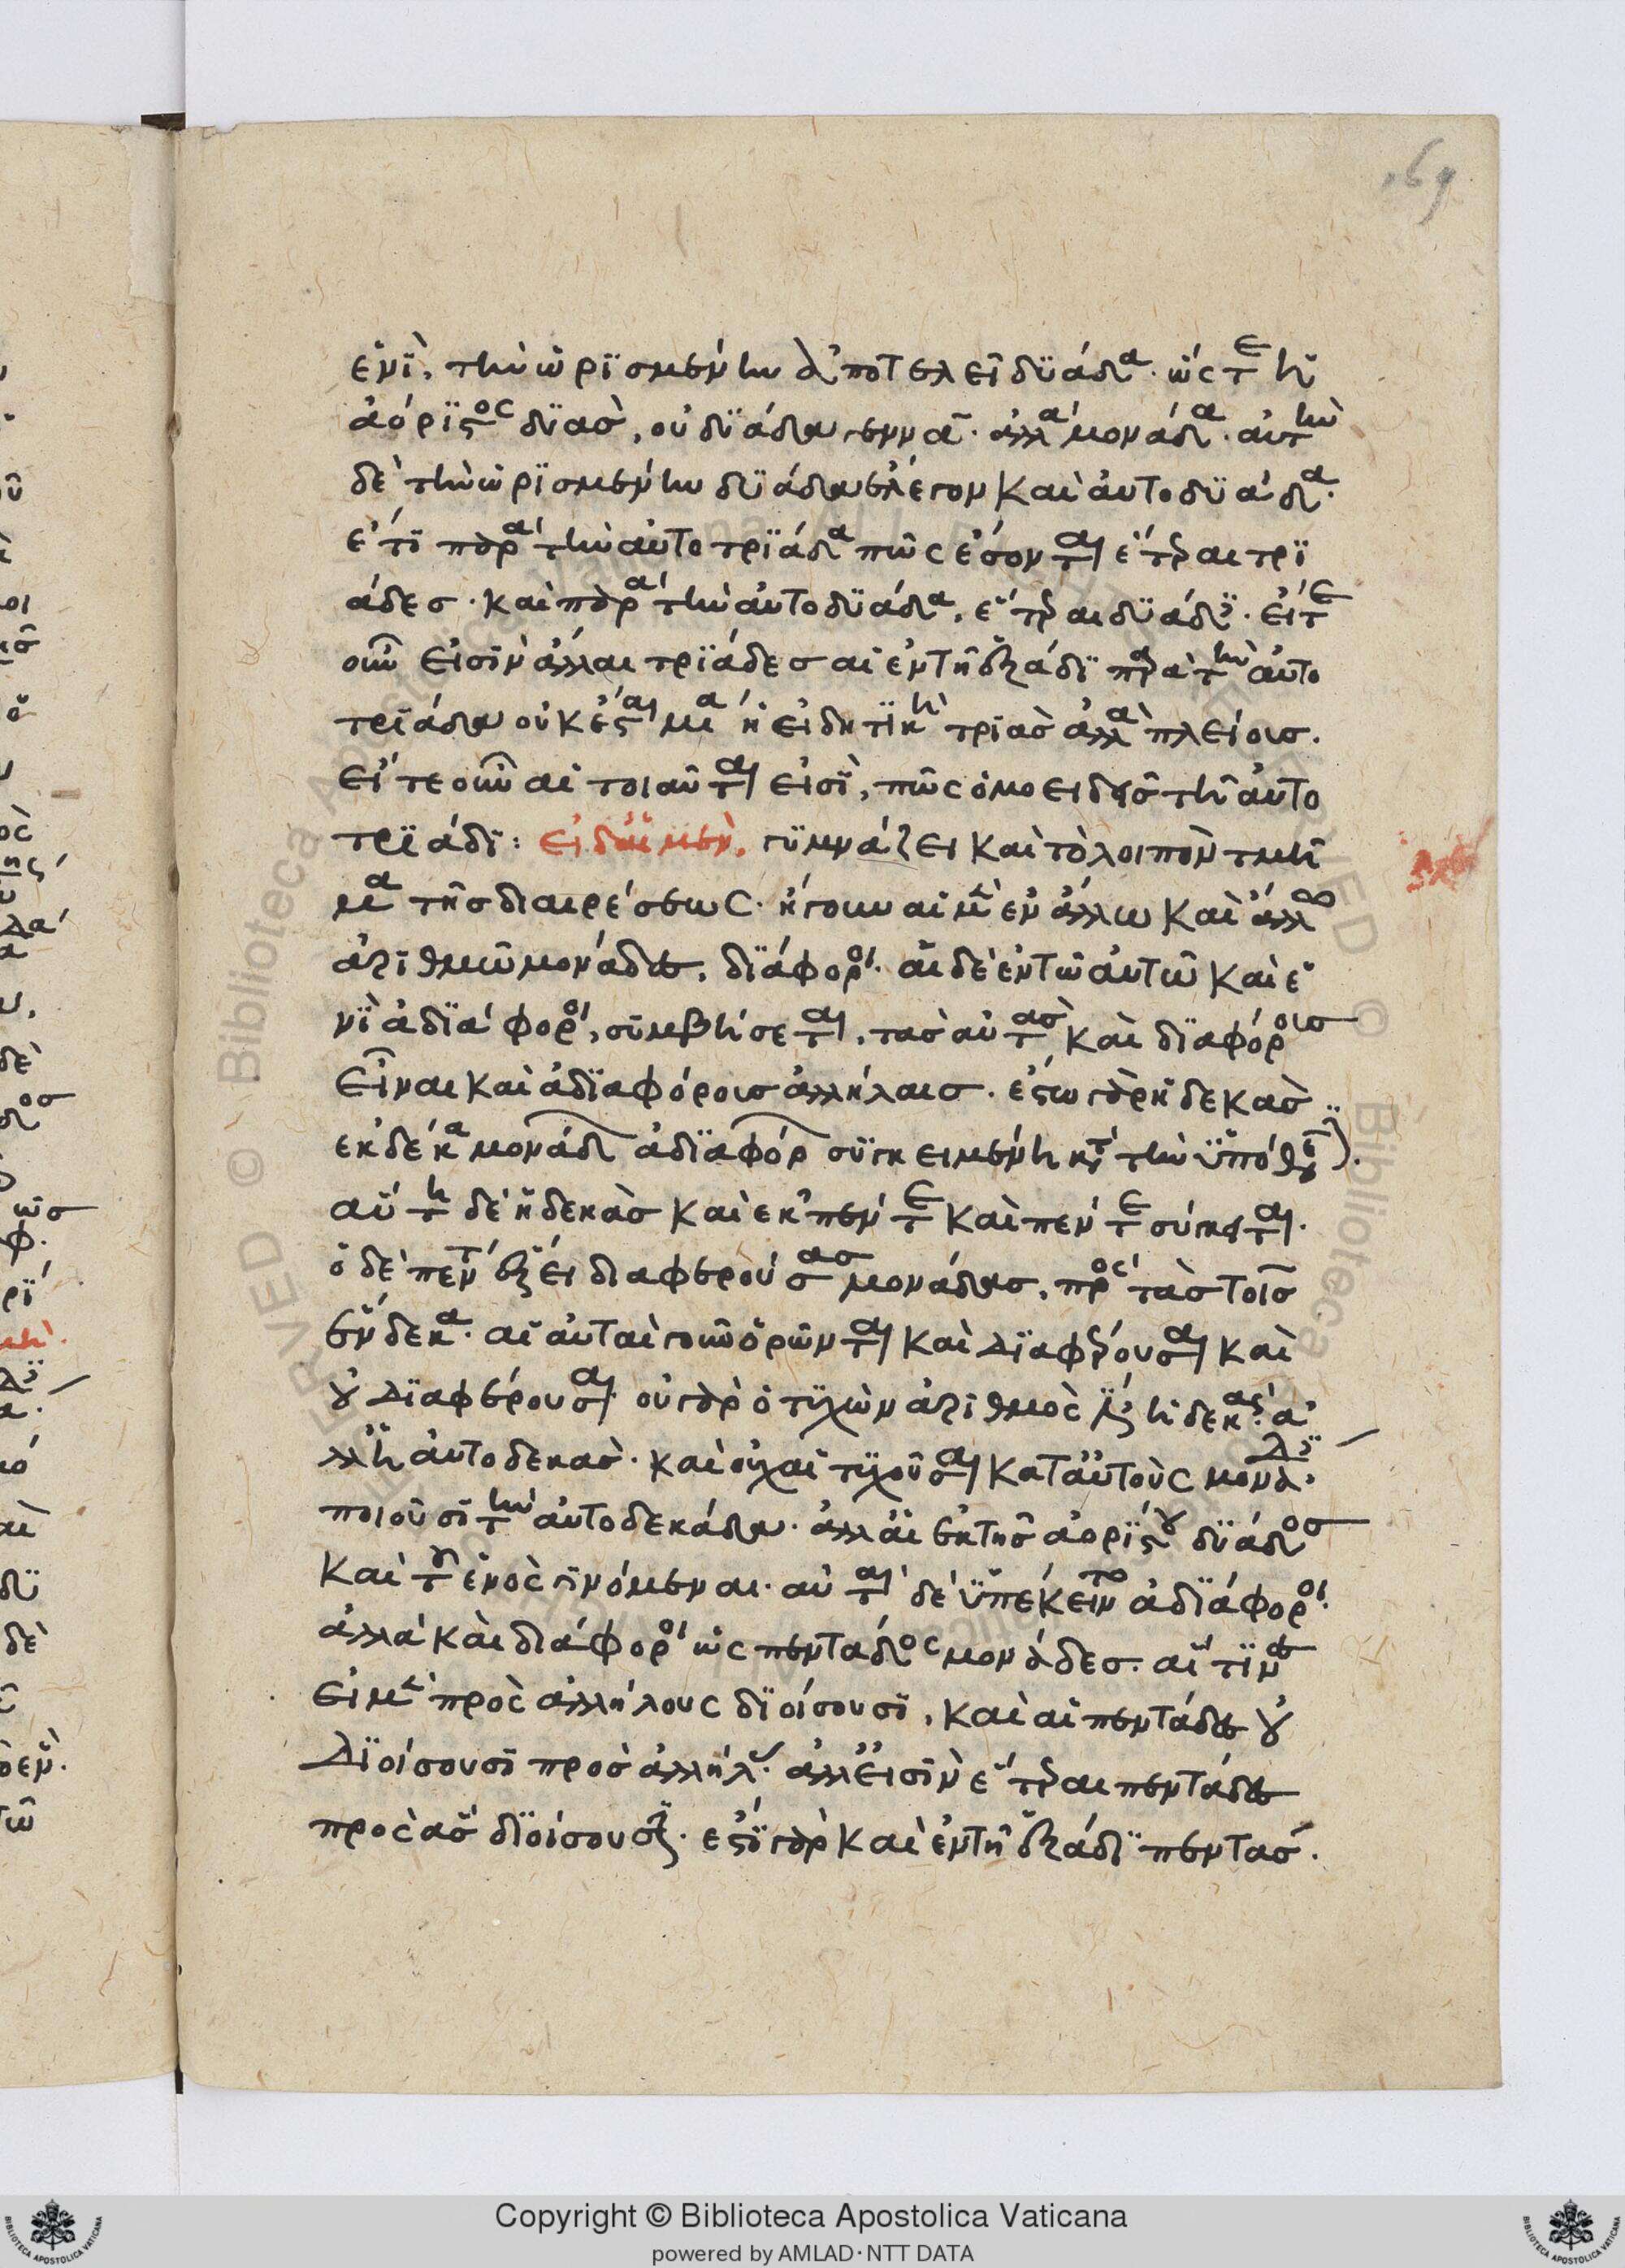 169
ἑνὶ, τὴν ὡρισμένην ἀποτελεῖ δυάδα. ὥστε ἡ
ἀόριστος δυὰς, οὐ δυάδα γεννᾷ. ἀλλὰ μονάδα. αὐτὴν
δὲ τὴν ὡρισμένην δυάδα ἔλεγον καὶ αὐτοδυάδα.
ἔτι παρὰ τὴν αὐτοτριάδα πῶς ἔσονται ἕτεραι τρι
άδες. καὶ παρὰ τὴν αὐτοδυάδα, ἕτεραι δυάδες. εἴτε
οὖν εἰσὶν ἄλλαι τριάδες αἱ ἐν τῇ δεκάδι παρὰ τὴν αὐτο
τριάδα οὐκ ἔσται μία ἡ εἰδητικὴ τριὰς ἀλλὰ πλείους.
εἴτε οὖν αἱ τοιαῦται εἰσὶ, πῶς ὁμοειδεῖς τῇ αὐτο
τριάδι: εἰ δ' αἱ μὲν, γυμνάζει καὶ τὸ λοιπὸν τμῆ
μα τῆς διαιρέσεως. ἤγουν αἱ μὲν ἐν ἄλλω καὶ ἄλλω
ἀριθμῶ μονάδες, διάφοροι. αἱ δὲ ἐν τῶ αὐτῶ καὶ ἑ
νὶ ἀδιάφοροι, συμβήσεται, τὰς αὐτὰς καὶ διαφόρους
εἶναι καὶ ἀδιαφόρους ἀλλήλαις. ἔστω γὰρ ἡ δεκὰς
ἐκ δέκα μονάδων ἀδιαφόρων συγκειμένη κατὰ τὴν ὑπόθεσιν.
αὕτη δὲ ἡ δεκὰς καὶ ἐκ πέντε καὶ πέντε σύγκειται.
ὁ δὲ πέντε ἕξει διαφερούσας μονάδας, πρὸς τὰς τοῖς
ἕνδεκα. αἱ αὐταὶ γοῦν ὁρῶνται καὶ διαφέρουσαι καὶ
οὐ διαφέρουσαι. οὐ γὰρ ὁ τυχὼν ἀριθμός ἐστιν ἡ δεκὰς. ἀ
λλ' ἡ αὐτοδεκὰς. καὶ οὐχ αἱ τυχοῦσαι κατ' αὐτοὺς μονάδες
ποιοῦσι τὴν αὐτοδεκάδα. ἀλλ' αἱ ἐκ τῆς ἀορίστου δυάδος
καὶ τοῦ ἑνὸς γινόμεναι. αὗται δὲ ὑπέκειντο ἀδιάφοροι.
ἀλλὰ καὶ διάφοροι ὡς πεντάδος μονάδες. αἵτινες
εἰ μὲν πρὸς ἀλλήλους διοίσουσι, καὶ αἱ πεντάδες οὐ
διοίσουσι πρὸς ἀλλήλας. ἀλλ' εἰσὶν ἕτεραι πεντάδες
πρὸς ἃς διοίσουσιν. ἔστι γὰρ καὶ ἐν τῇ δεκάδι πεντάς.
© Biblioteca Apostolica Vaticana
Copyright © Biblioteca Apostolica Vaticana
powered by AMLAD·NTT DATA